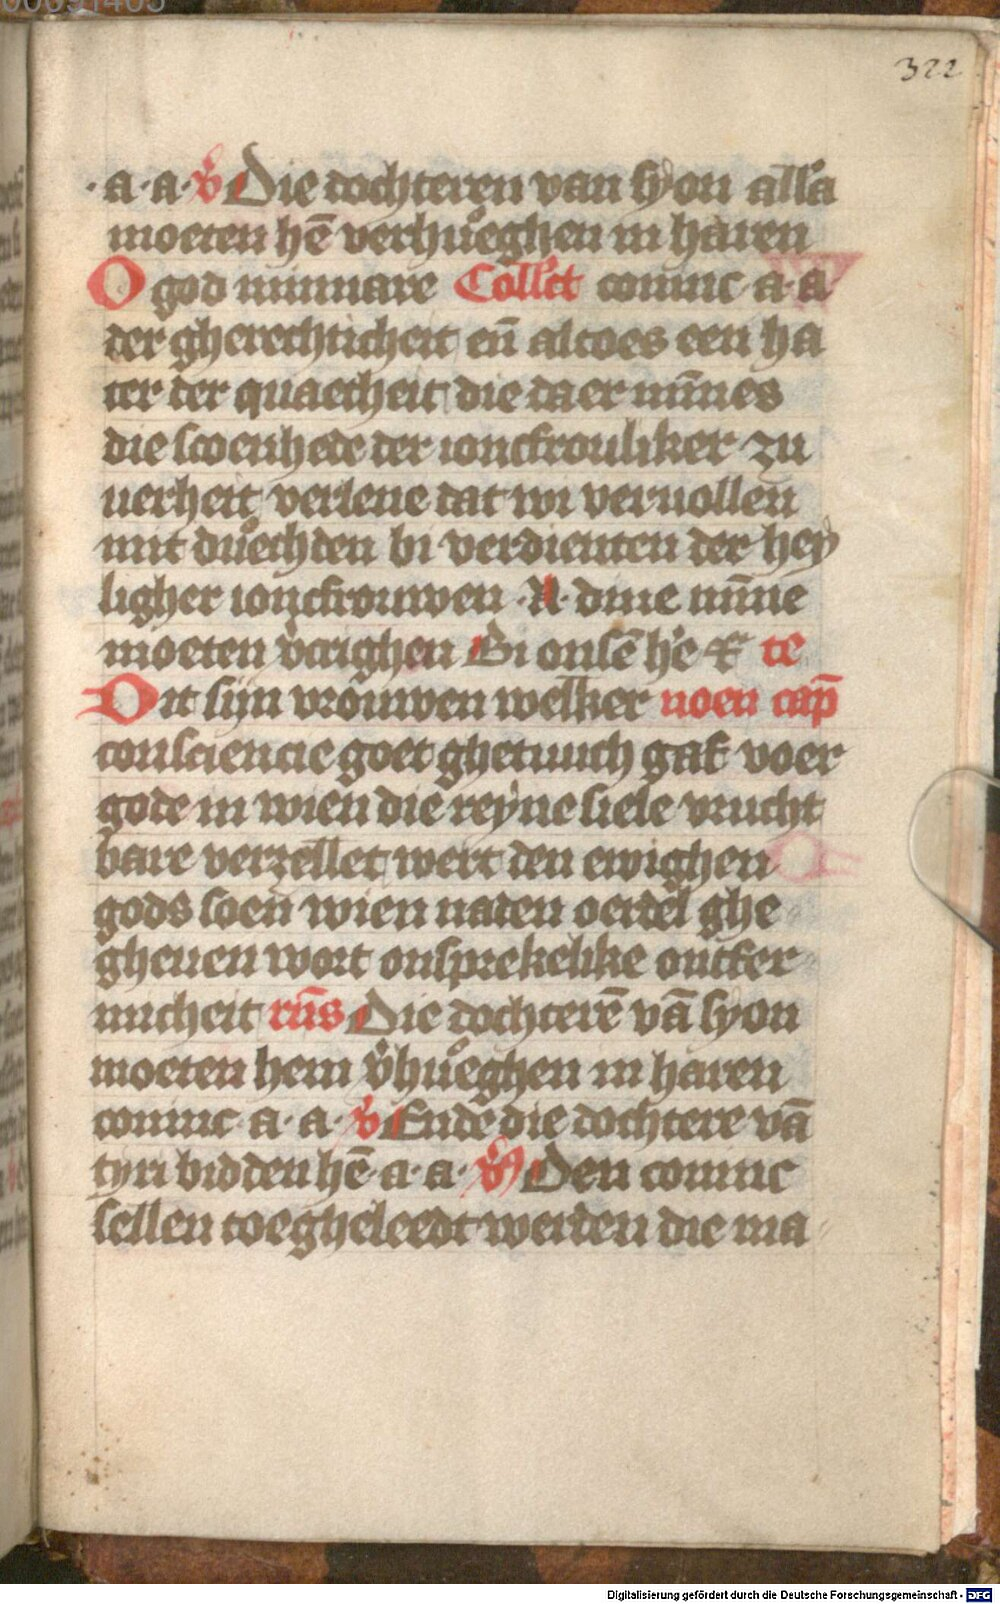 322
·a·a· v̄ Die dochteren van syon all'a
moeten hē verhuͦeghen in haren
O god minnare Coll'ct coninc·a·a
der gherechticheit en̄ altoes een ha
ter der quaetheit die daer mīnes
die scoenhede der ioncfrouliker zu
uerheit verlene dat wi veruollen
mit duͦechden bi verdienten der hey
ligher ioncfrouwen ·N· dine mīne
moeten vcrighen Bi onsē he' &c te
Dit sijn vrouwen welker noen cap̄
consciencie goet ghetuuch gaf voer
gode in wien die reyne siele vrucht
bare verzellet wert den ewighen
gods soen wien naden oerdel ghe
gheuen wort onsprekelike ontfer
micheit rn̄s Die dochterē vā syon
moeten hem v̄huͦeghen in haren
coninc·a·a· v̄ Ende die dochtere vā
tyri bidden hē·a·a· v̄s Den coninc
sellen toegheleedt werden die ma
Digitalisierung gefördert durch die Deutsche Forschungsgemeinschaft - DFG